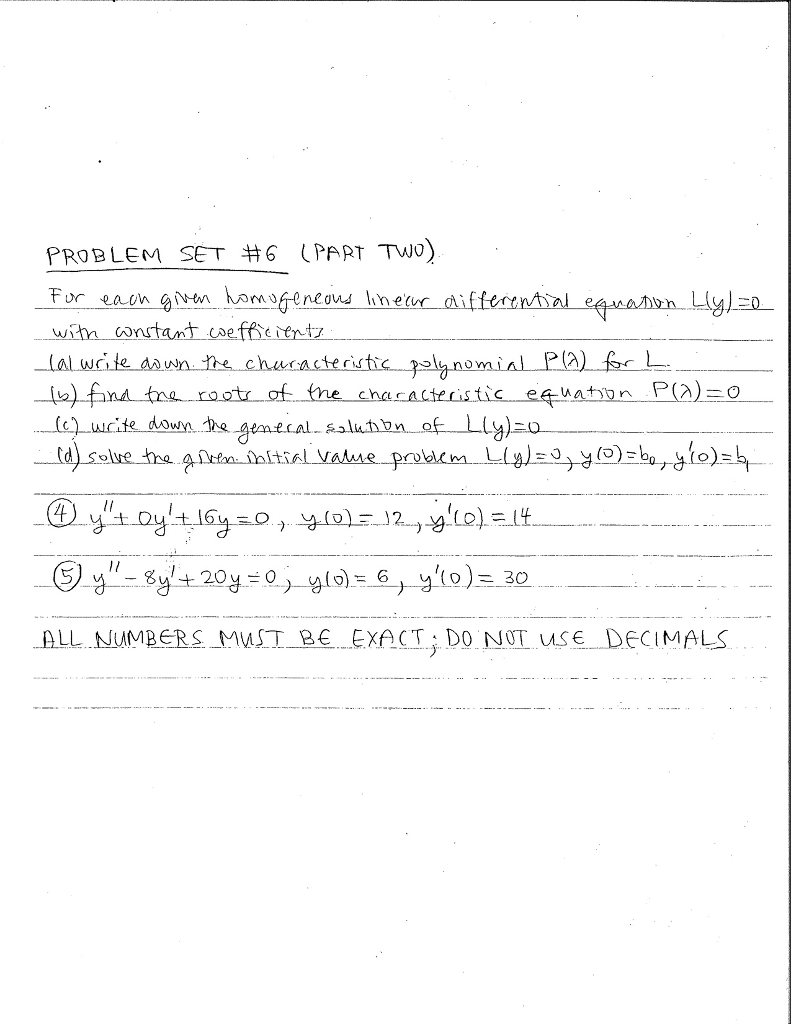 PROBLEM SET #6 (PART TWO)
For each given homogeneous linear differential equation L(y)=0
with constant coefficients
(a) write down the characteristic polynomial P(λ) for L.
(b) find the roots of the characteristic equation P(λ)=0
(c) write down the general solution of L(y)=0
(d) solve the given initial value problem L(y)=0, y(0)=b₀, y'(0)=b₁
④ y''+ 0y'+16y=0, y(0)=12, y'(0)=14
⑤ y''-8y'+20y=0, y(0)=6, y'(0)=30
ALL NUMBERS MUST BE EXACT; DO NOT USE DECIMALS